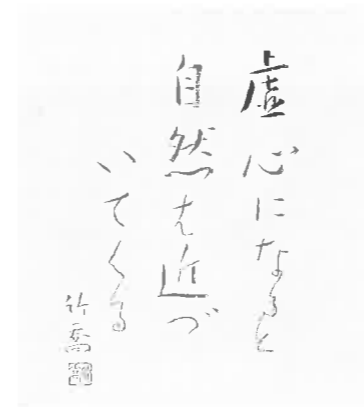 虚心になると
自然は近づ
いてくる
竹喬